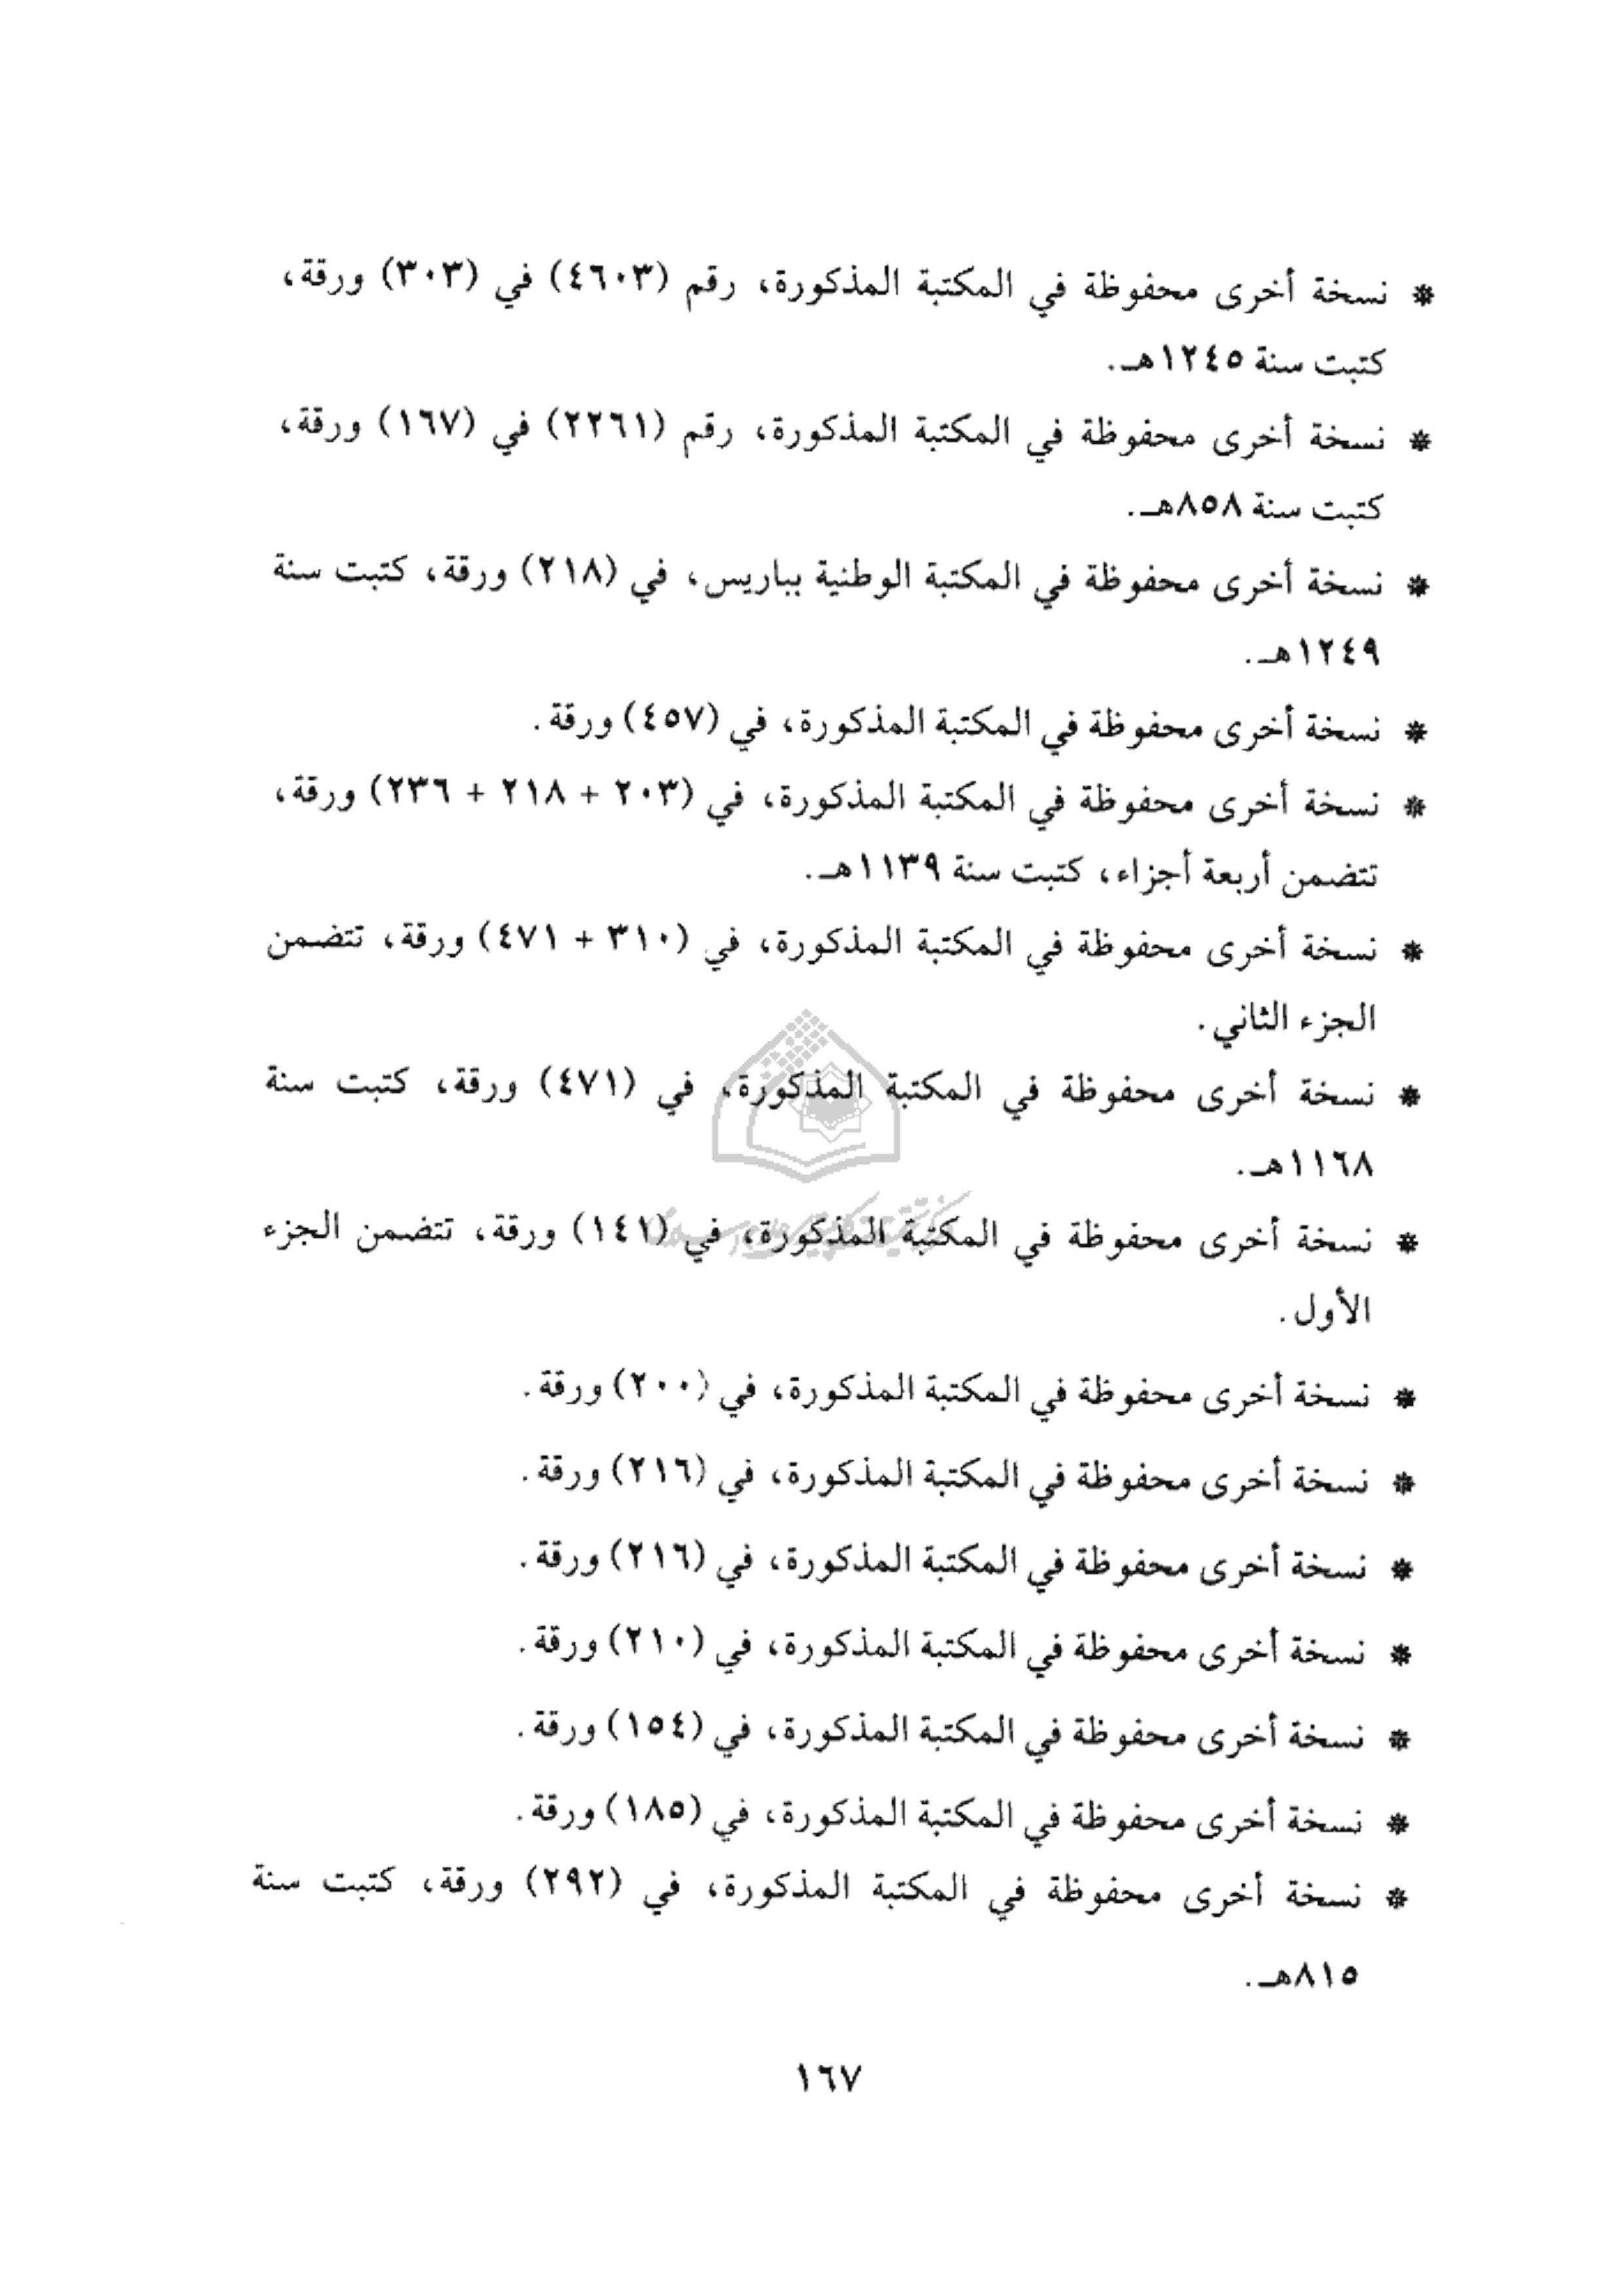 * نسخة أخرى محفوظة في المكتبة المذكورة، رقم (٤٦٠٣) في (٣٠٣) ورقة،
كتبت سنة ١٢٤٥هـ.
* نسخة أخرى محفوظة في المكتبة المذكورة، رقم (٢٢٦١) في (١٦٧) ورقة،
كتبت سنة ٨٥٨هـ.
* نسخة أخرى محفوظة في المكتبة الوطنية بباريس، في (٢١٨) ورقة، كتبت سنة
١٢٤٩هـ.
* نسخة أخرى محفوظة في المكتبة المذكورة، في (٤٥٧) ورقة.
* نسخة أخرى محفوظة في المكتبة المذكورة، في (٢٠٣ + ٢١٨ + ٢٣٦) ورقة،
تتضمن أربعة أجزاء، كتبت سنة ١١٣٩هـ.
* نسخة أخرى محفوظة في المكتبة المذكورة، في (٣١٠ + ٤٧١) ورقة، تتضمن
الجزء الثاني.
* نسخة أخرى محفوظة في المكتبة المذكورة، في (٤٧١) ورقة، كتبت سنة
١١٦٨هـ.
* نسخة أخرى محفوظة في المكتبة المذكورة، في (١٤١) ورقة، تتضمن الجزء
الأول.
* نسخة أخرى محفوظة في المكتبة المذكورة، في (٢٠٠) ورقة.
* نسخة أخرى محفوظة في المكتبة المذكورة، في (٢١٦) ورقة.
* نسخة أخرى محفوظة في المكتبة المذكورة، في (٢١٦) ورقة.
* نسخة أخرى محفوظة في المكتبة المذكورة، في (٢١٠) ورقة.
* نسخة أخرى محفوظة في المكتبة المذكورة، في (١٥٤) ورقة.
* نسخة أخرى محفوظة في المكتبة المذكورة، في (١٨٥) ورقة.
* نسخة أخرى محفوظة في المكتبة المذكورة، في (٢٩٢) ورقة، كتبت سنة
٨١٥هـ.
١٦٧